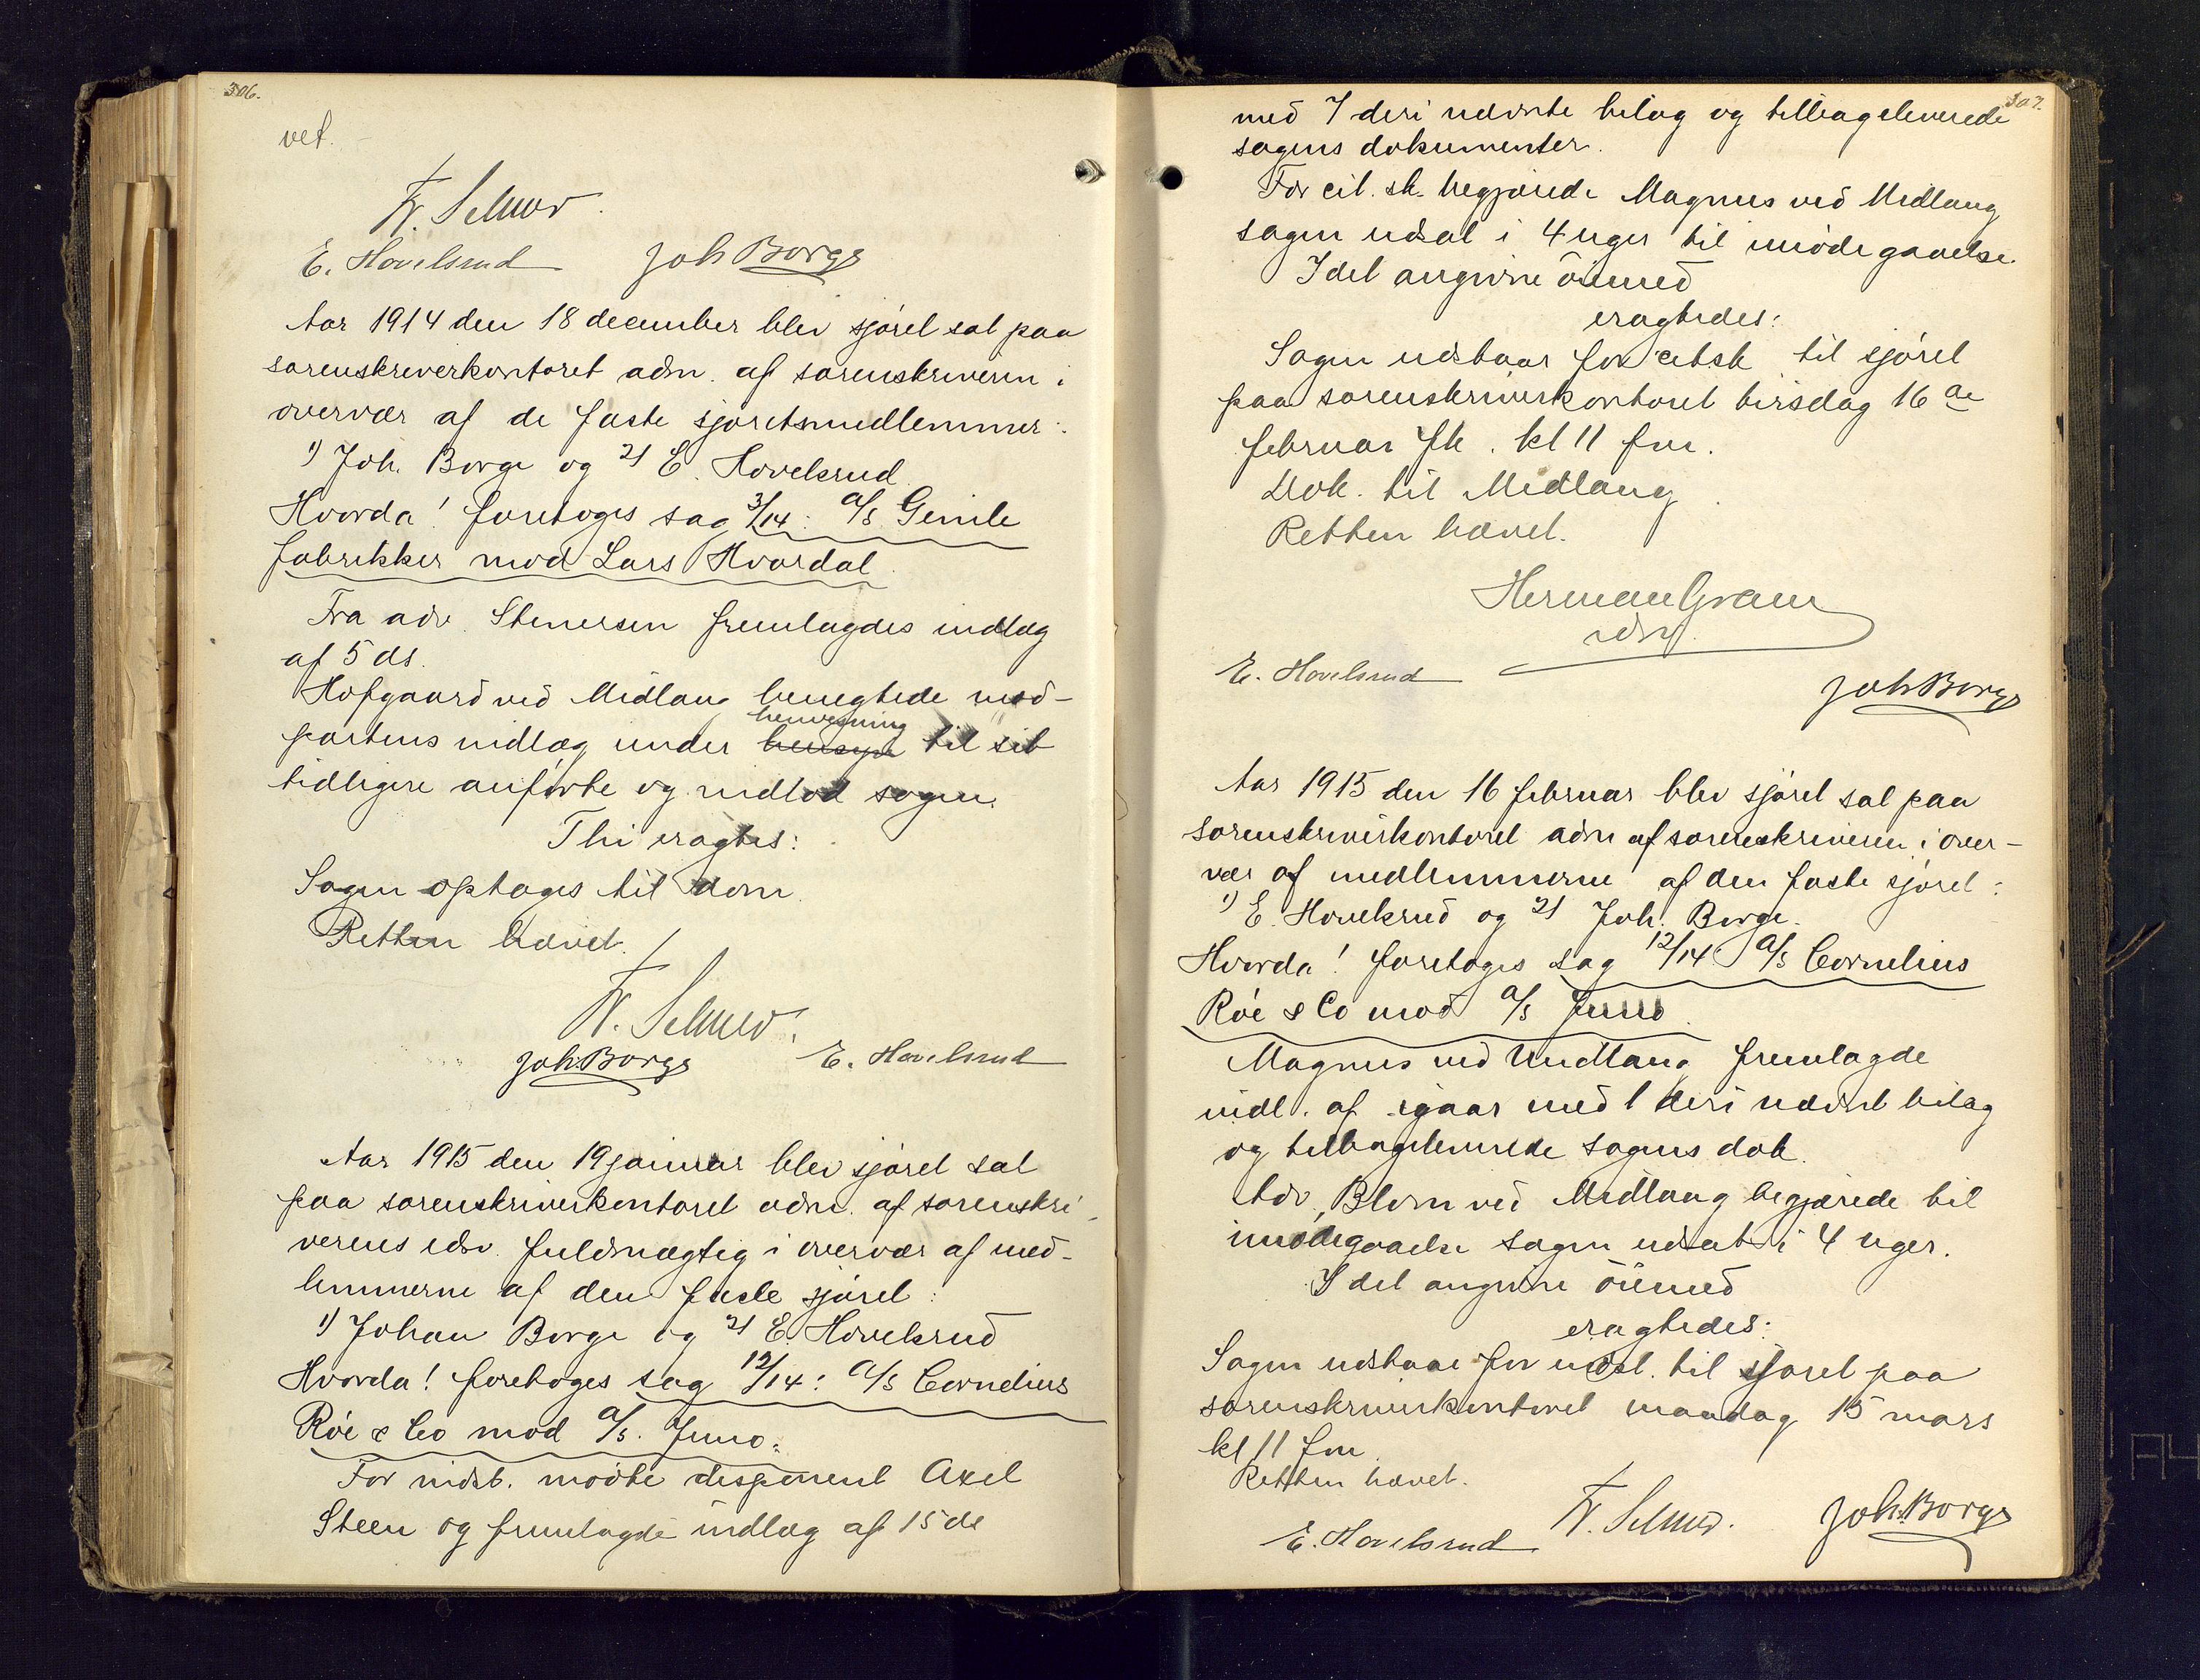 306.
vet.
Fr. Selmer.
E. Hovelsrud Joh Borge
Aar 1914 den 18 december blev sjøret sat paa
sorenskriverkontoret adm. af sorenskriveren i
overvær af de faste sjøretsmedlemmer:
1) Joh. Borge og 2) E. Hovelsrud
Hvorda! foretoges sag 3/14: A/S Gimle
fabrikker mod Lars Hvordal
Fra adv. Stenersen fremlagdes indlæg
af 5 ds.
Hofgaard ved Midlang benegtede mod-
partens indlæg under henvisning til sit
tidligere anførte og indlod sagen.
Thi eragtes:
Sagen optages til dom.
Retten hævet.
Fr. Selmer.
Joh. Borge E. Hovelsrud
Aar 1915 den 19 januar blev sjøret sat
paa sorenskriverkontoret adm. af sorenskri-
verens edsv. fuldmægtig i overvær af med-
lemmerne af den faste sjøret:
1) Johan Borge og 2) E. Hovelsrud
Hvorda! foretoges sag 12/14: A/S Cornelius
Röe & Co mod A/S. Juno.
For indst. mødte disponent Axel
Steen og fremlagde indlæg af 15 ds
307.
med 7 deri nævnte bilag og tilbageleverede
sagens dokumenter.
For cit. sk. begjærede Magnus ved Midlang
sagen udsat i 4 uger til imødegaaelse.
I det angivne öiemed
eragtedes:
Sagen udstaar for citsk til sjøret
paa sorenskriverkontoret tirsdag 16de
februar fk. kl 11 fm.
Dok. til Midlang
Retten hævet.
Herman Gram
edsv.
E. Hovelsrud
Joh Borge
Aar 1915 den 16 februar blev sjøret sat paa
sorenskriverkontoret adm af sorenskriveren i over-
vær af medlemmerne af den faste sjøret:
1) E. Hovelsrud og 2) Joh. Borge.
Hvorda! foretoges sag 12/14 A/S Cornelius
Röe & Co mod A/S Juno
Magnus ved Midlang fremlagde
indl. af igaar med 1 deri nævnt bilag
og tilbageleverede sagens dok.
Adv. Blom ved Midlang begjærede til
imødegaaelse sagen udsat i 4 uger.
I det angivne öiemed
eragtedes:
Sagen udstaar for indst. til sjøret paa
sorenskriverkontoret mandag 15 mars
kl 11 fm.
Retten hævet.
E. Hovelsrud Fr. Selmer. Joh. Borge